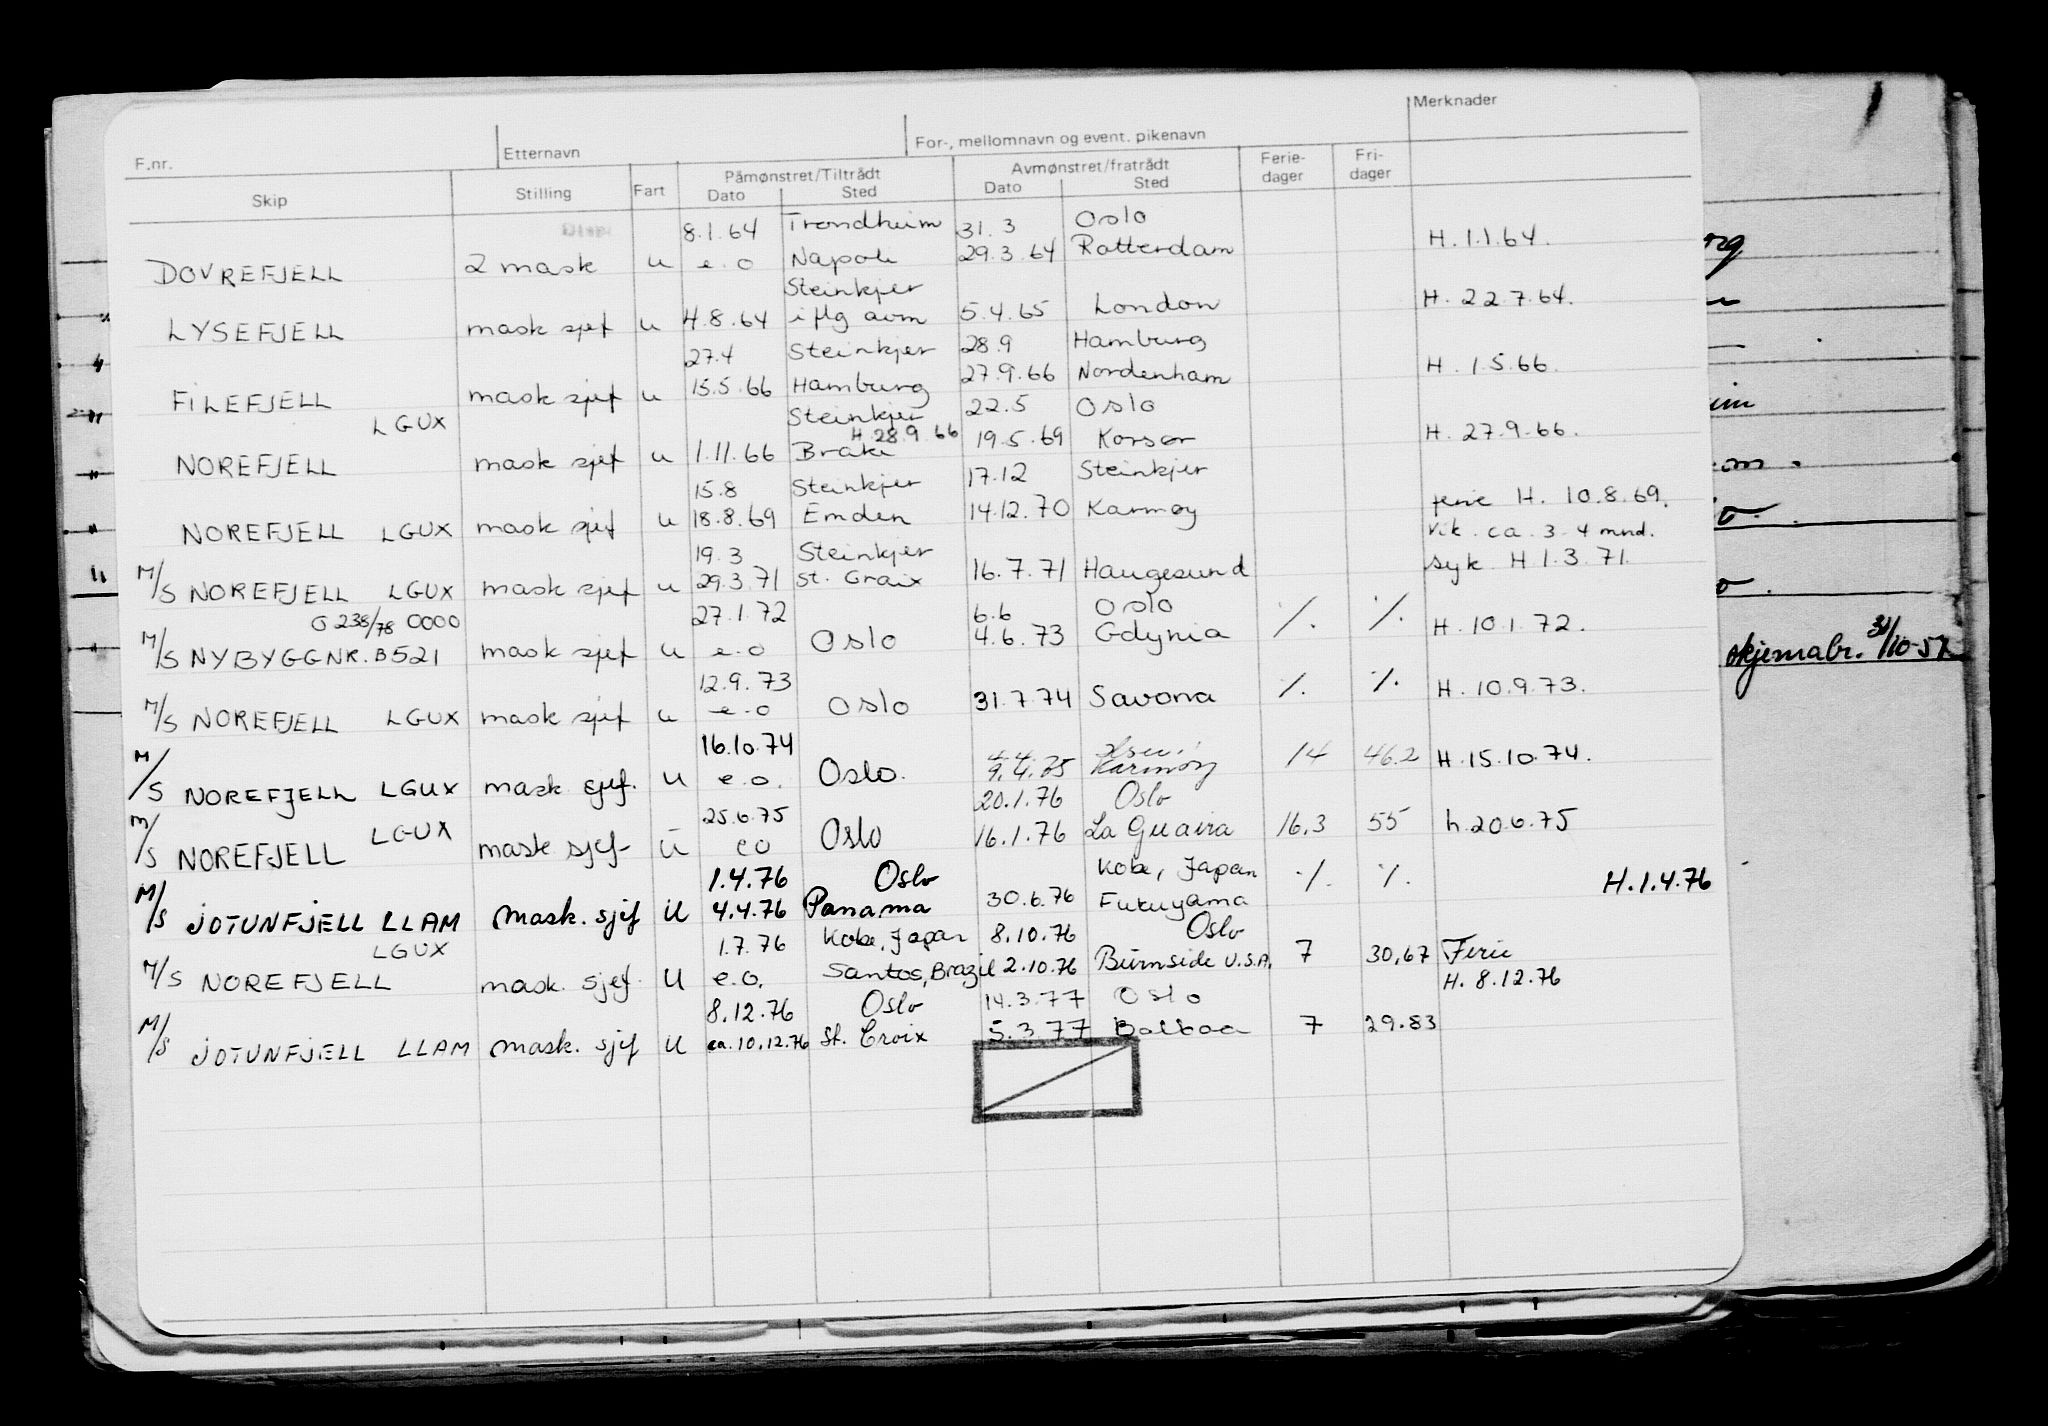 F.nr. Etternavn For-, mellomnavn og event. pikenavn Merknader
Skip Stilling Fart Påmønstret/Tiltrådt Avmønstret/fratrådt Ferie- Fri-
Dato Sted Dato Sted dager dager
8.1.64 Trondheim 31.3 Oslo
DOVREFJELL 2 mask u e.o Napoli 29.3.64 Rotterdam H. 1.1.64.
Steinkjer
LYSEFJELL mask sjef u 4.8.64 iflg avm 5.4.65 London H. 22.7.64.
27.4 Steinkjer 28.9 Hamburg
FILEFJELL mask sjef u 15.5.66 Hamburg 27.9.66 Nordenham H. 1.5.66.
LGUX Steinkjer 22.5 Oslo
H. 28.9.66
NOREFJELL mask sjef u 1.11.66 Brake 19.5.69 Korsør H. 27.9.66.
15.8 Steinkjer 17.12 Steinkjer
NOREFJELL LGUX mask sjef u 18.8.69 Emden 14.12.70 Karmøy ferie H. 10.8.69.
Vik. ca. 3-4 mnd.
19.3 Steinkjer
M/S NOREFJELL LGUX mask sjef u 29.3.71 St. Graix 16.7.71 Haugesund syk H 1.3.71.
G 238/78 0000 27.1.72 6.6 Oslo
M/S NYBYGGNR. B521 mask sjef u e.o Oslo 4.6.73 Gdynia ⁒ ⁒ H. 10.1.72.
12.9.73
M/S NOREFJELL LGUX mask sjef u e.o Oslo 31.7.74 Savona ⁒ ⁒ H. 10.9.73.
16.10.74
M/S NOREFJELL LGUX mask sjef. u e.o. Oslo. 9.4.75 Karmøy 14 46.2 H.15.10.74.
25.6.75 20.1.76 Oslo
M/S NOREFJELL LGUX mask sjef u eo Oslo 16.1.76 La Guaira 16.3 55 h.20.6.75
1.4.76 Oslo Kobe, Japan
M/S JOTUNFJELL LLAM mask. sjef u 4.4.76 Panama 30.6.76 Fukuyama ⁒ ⁒ H.1.4.76
LGUX 1.7.76 Kobe, Japan 8.10.76 Oslo
M/S NOREFJELL mask. sjef. u e.o. Santos, Brazil 2.10.76 Burnside U.S.A. 7 30,67 Ferie
H. 8.12.76
8.12.76 Oslo 14.3.77 Oslo
M/S JOTUNFJELL LLAM mask. sjef u ca.10.12.76 St. Croix 5.3.77 Balboa 7 29.83
skjemabr. 31/10-57